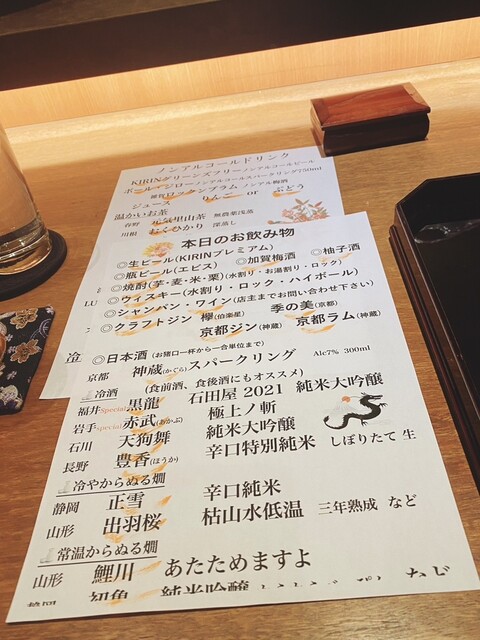 ノンアルコールドリンク
KIRINグリーンズフリーノンアルコールビール
ポール・ジローノンアルコールスパークリング750ml
ロックンプラム ノンアル梅酒
ジュース りんご or ぶどう
温かいお茶
元気里山茶 無農薬浅蒸
川根 おくひかり 深蒸し
本日のお飲み物
◎生ビール(KIRINプレミアム)
◎瓶ビール(エビス) ◎加賀梅酒 ◎柚子酒
◎焼酎(芋・麦・米・栗)(水割り・お湯割り・ロック)
◎ウィスキー(水割り・ロック・ハイボール)
◎シャンパン・ワイン(店主までお問い合わせ下さい)
◎クラフトジン 欅(伯楽星) 季の美(京都)
京都ジン(神蔵) 京都ラム(神蔵)
◎日本酒(お猪口一杯から一合単位まで)
京都 神蔵(かぐら)スパークリング Alc7% 300ml
冷酒 (食前酒、食後酒にもオススメ)
福井Special黒龍 石田屋 2021 純米大吟醸
岩手special赤武(あかぶ) 極上ノ斬
石川 天狗舞 純米大吟醸
長野 豊香(ほうか) 辛口特別純米 しぼりたて 生
冷やからぬる燗
静岡 正雪 辛口純米
山形 出羽桜 枯山水低温 三年熟成 など
常温からぬる燗
山形 鯉川 あたためますよ
純米吟醸